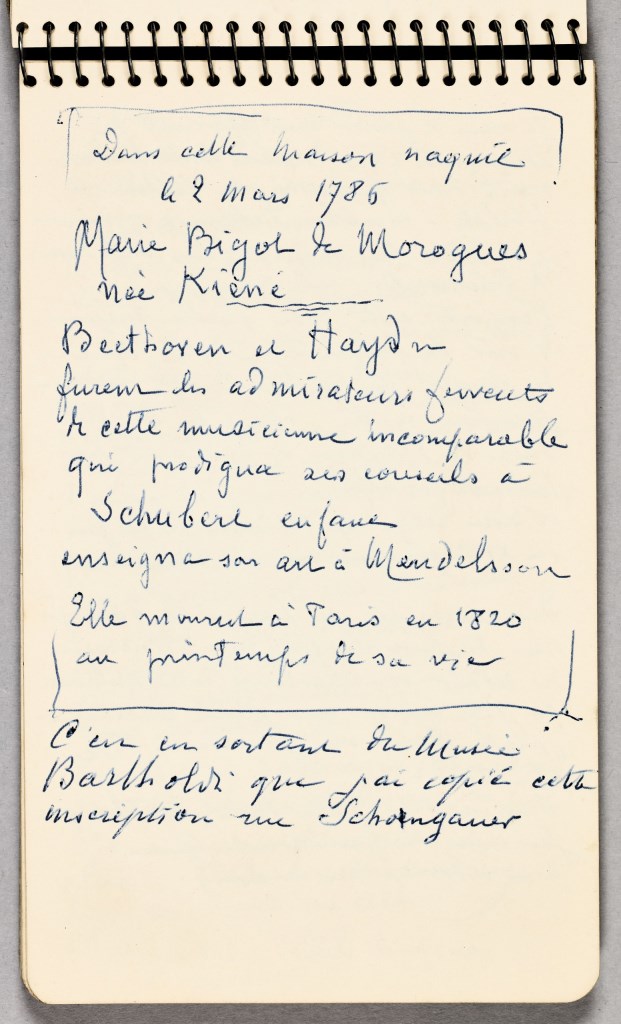 Dans cette maison naquit
le 2 Mars 1786
Marie Bigot de Morogues
née Kiéné
Beethoven et Haydn
furent les admirateurs fervents
de cette musicienne incomparable
qui prodigua ses conseils à
Schubert enfant
enseigna son art à Mendelsson
Elle mourut à Paris en 1820
au printemps de sa vie
C'est en sortant du Musée
Bartholdi que j'ai copié cette
inscription rue Schoengauer